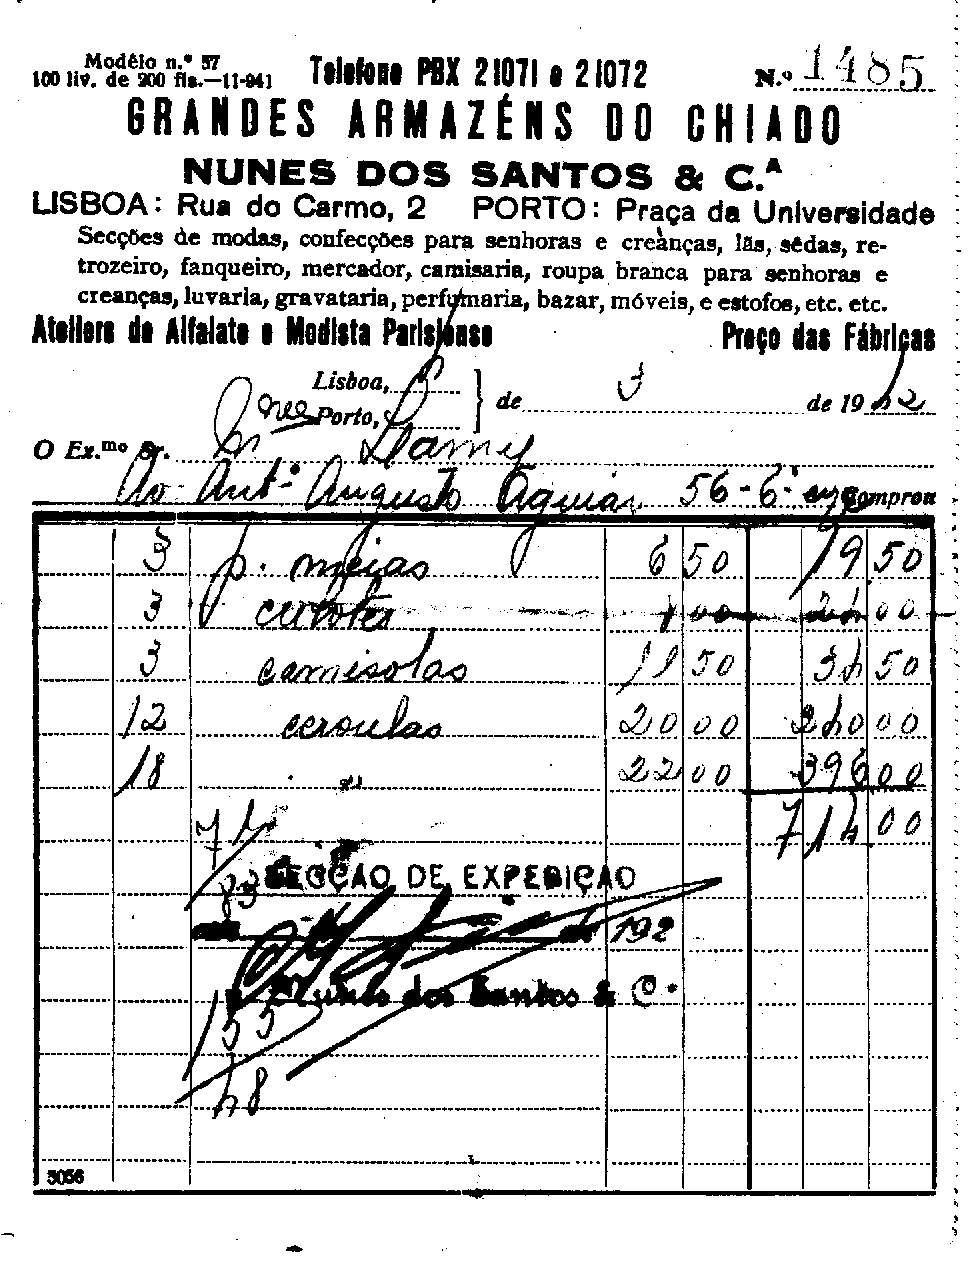 Modêlo n.º 57
100 liv. de 200 fls.—11-941
Telefone PBX 21071 e 21072
N.º 1485
GRANDES ARMAZÉNS DO CHIADO
NUNES DOS SANTOS & C.ᴬ
LISBOA: Rua do Carmo, 2 PORTO: Praça da Universidade
Secções de modas, confecções para senhoras e creànças, lãs, sêdas, re-
trozeiro, fanqueiro, mercador, camisaria, roupa branca para senhoras e
creanças, luvaria, gravataria, perfumaria, bazar, móveis, e estofos, etc. etc.
Ateliers de Alfaiate e Modista Parisiense Preço das Fábricas
Lisboa,
Porto, de 3 de 1942
O Ex.mo Sr.
Av. Antº Augusto Aguiar 56-6º Comprou
3 p. meias 6 50 19 50
3 00 24 00
3 camisolas 11 50 34 50
12 ceroulas 20 00 240 00
18 " 22 00 396 00
714 00
83
SECÇÃO DE EXPEDIÇÃO
de 192
Nunes dos Santos & C.
155
48
5056